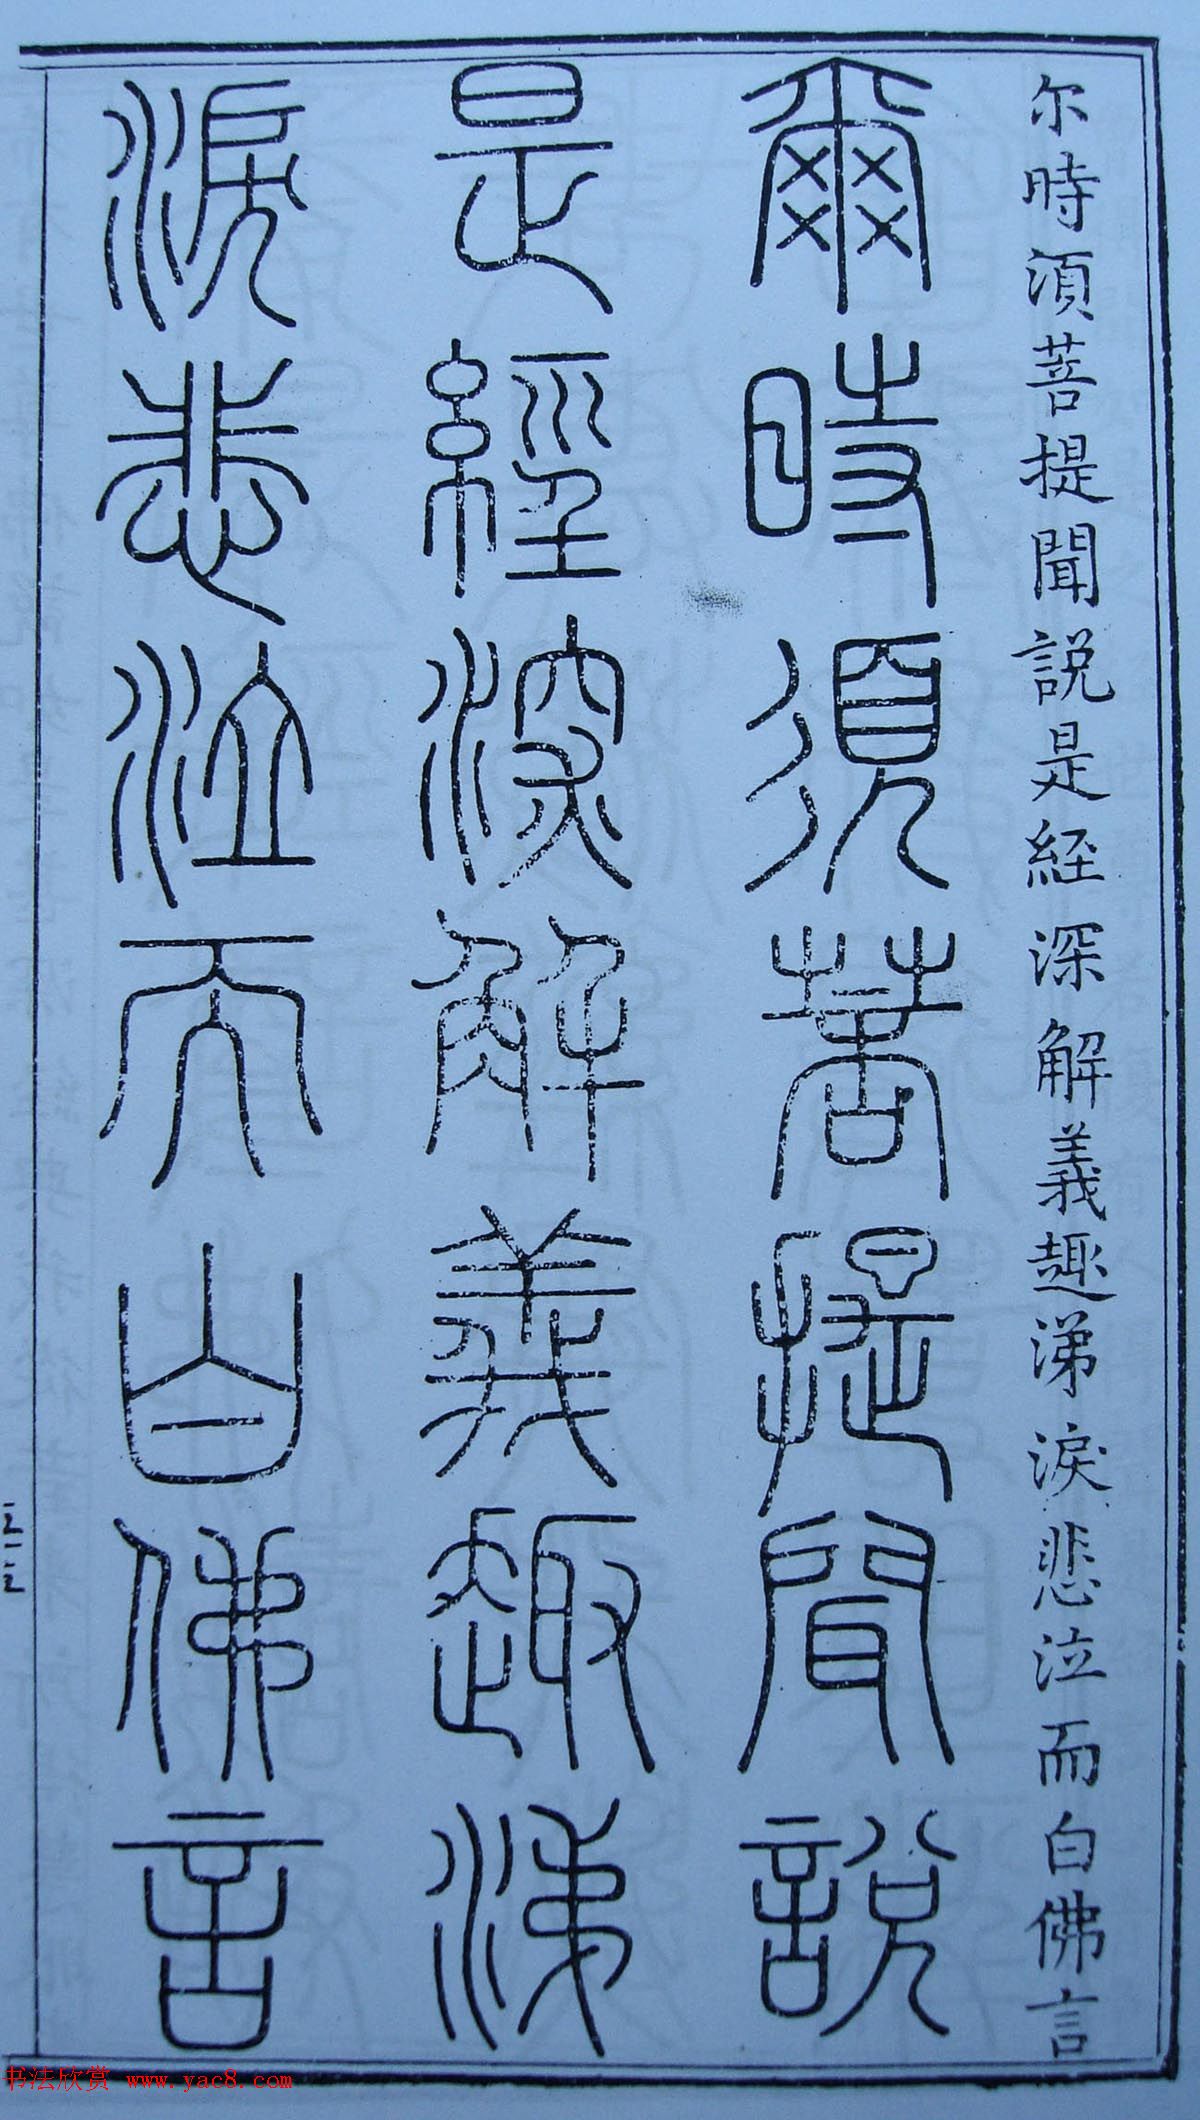 尔時湏菩提聞説是経深解義趣涕淚悲泣而白佛言
爾時須菩提聞說
是經深解義趣涕
淚悲泣而白佛言
书法欣赏 www.yac8.com